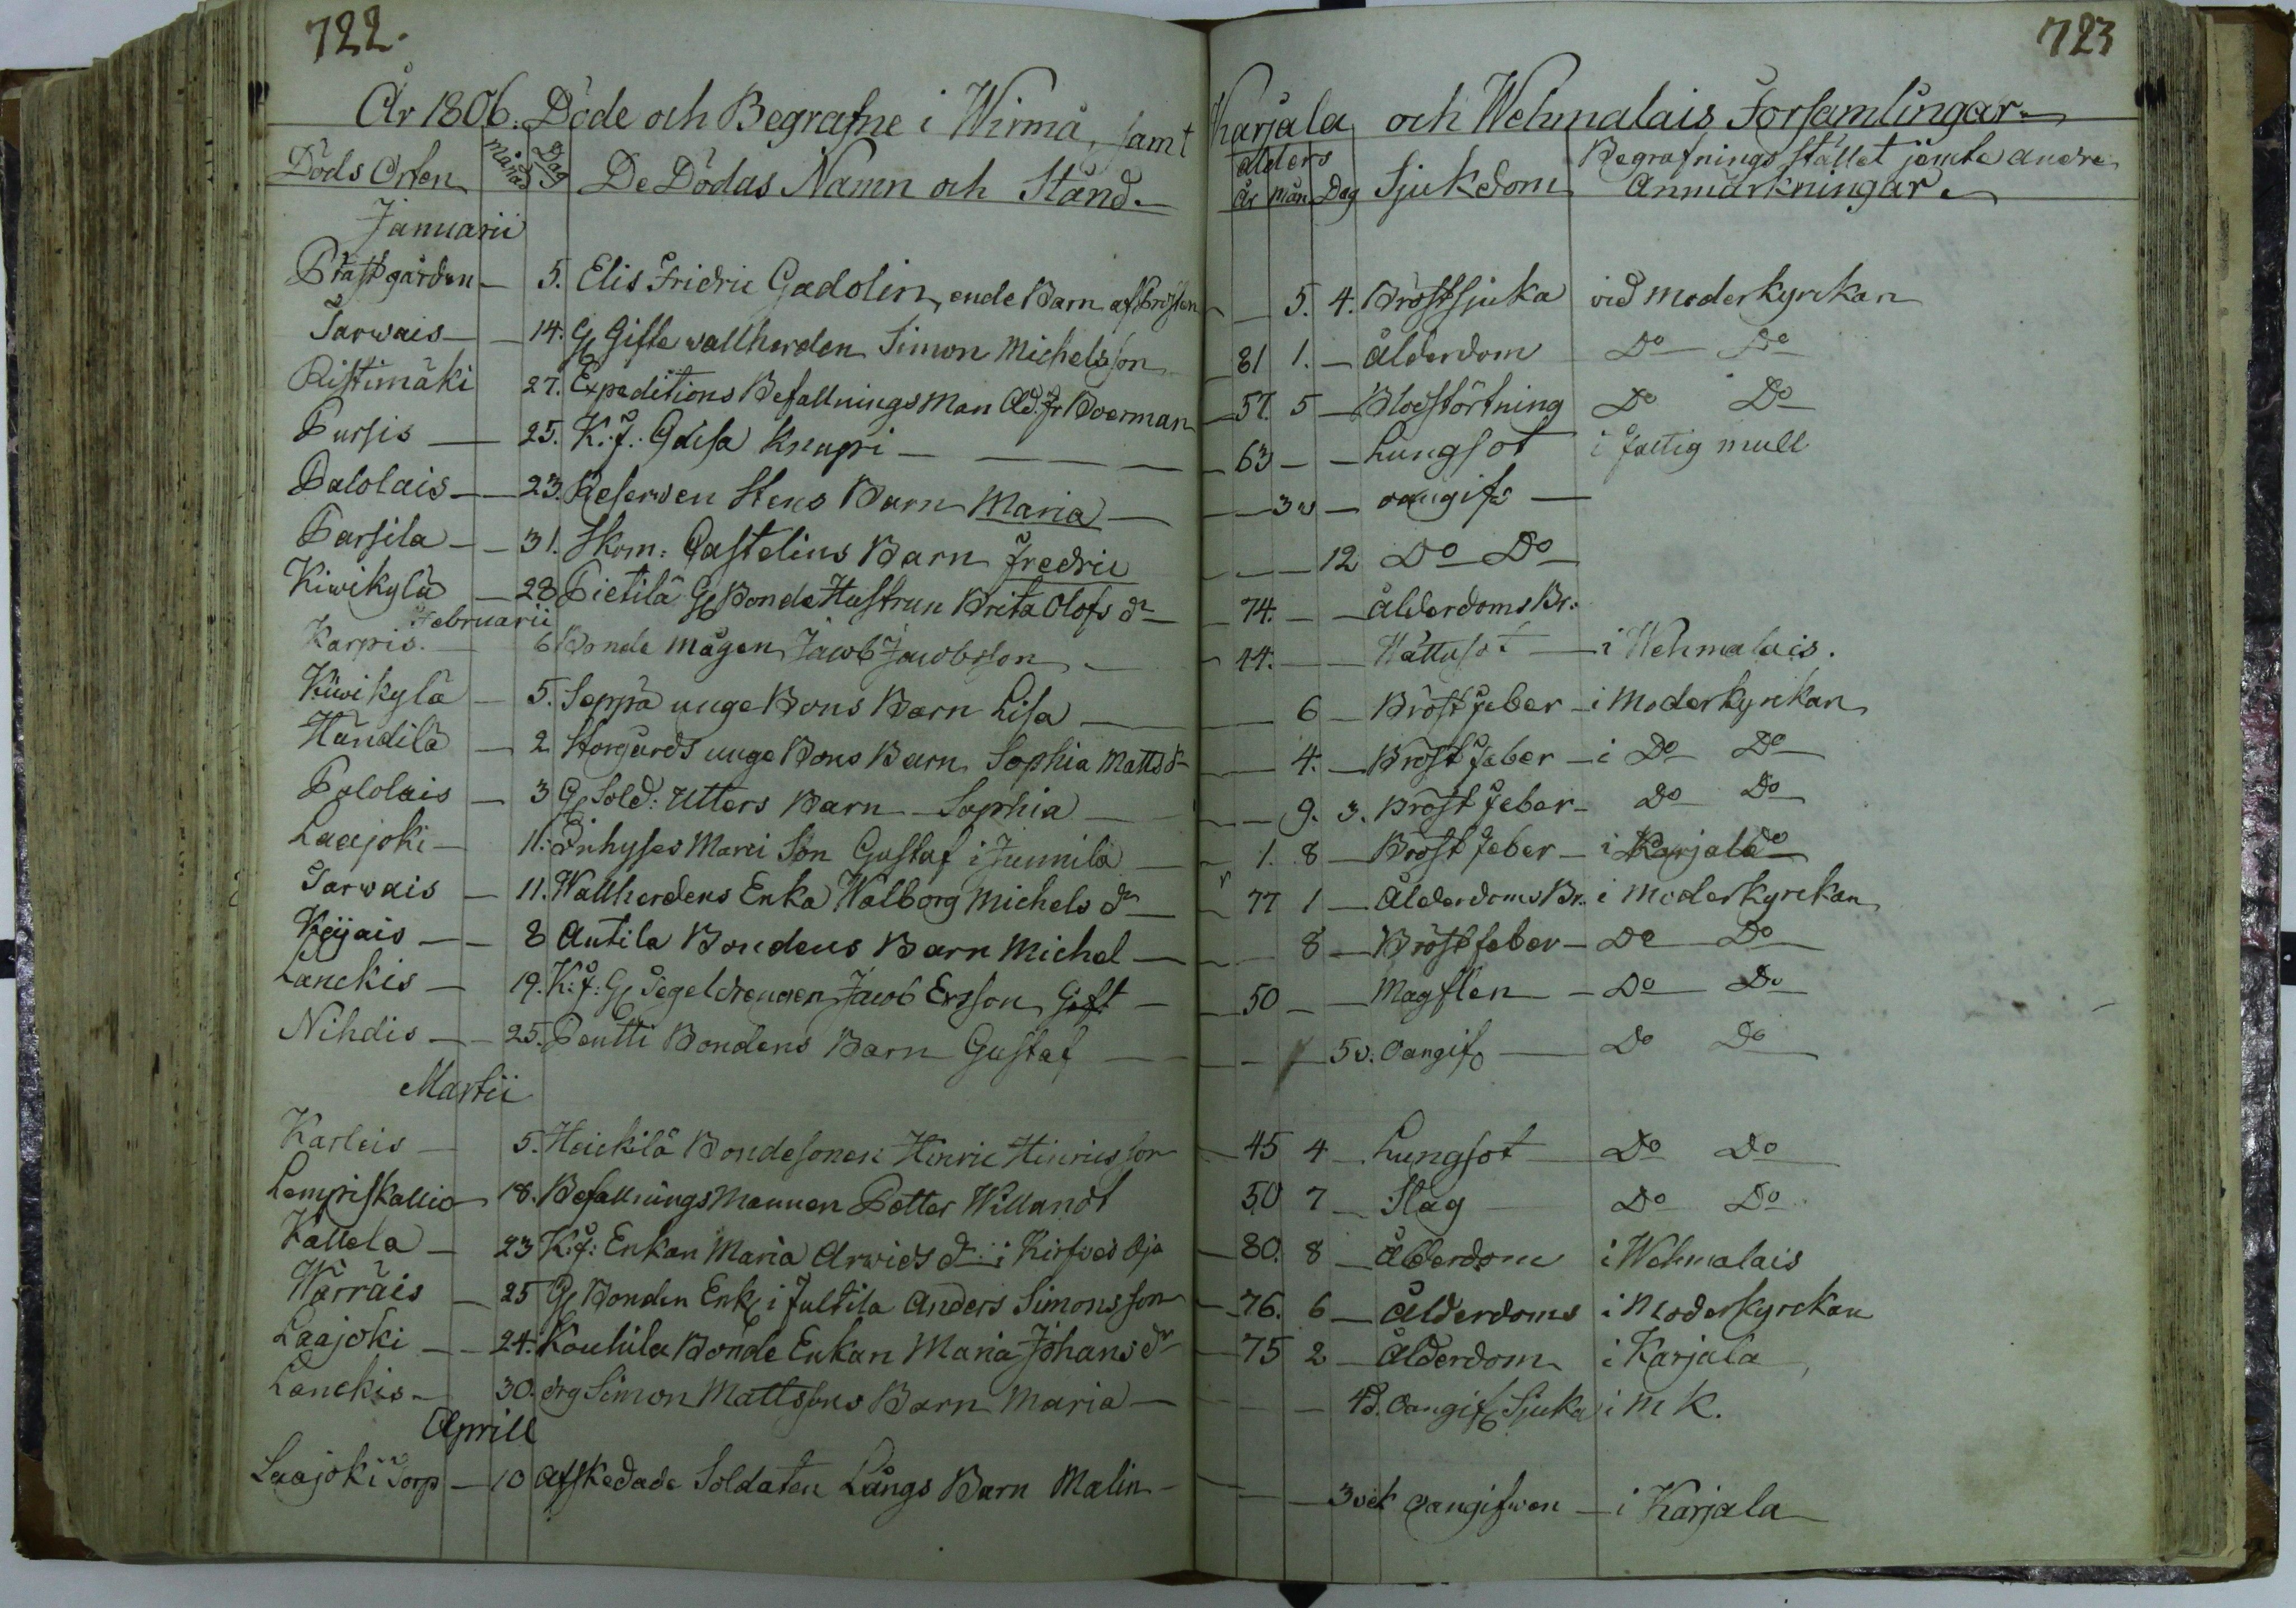 722.
723
År 1806. Döde och Begrafne i Wirmå, samt Karjala och Wehmalais Församlingar.
Döds Orten Månad Dag De Dödas Namn och Stånd. Ålders År Mån Dag Sjukdom Begrafnings Stället jämte andre Anmärkningar.
Januarii
Prästgården 5. Elis Fridric Gadolin, ende Barn af Prosten 5. 4. Bröstsjuka vid moderkyrckan
Tarwais 14. Gl Gifte vallherden Simon Michelsson 81 1. Ålderdom Do Do
Ristimäki 27. Expeditions Befallnings Man Ad. Fr Boerman 57. 5 Blodstörtning Do Do
Pursis 25. K. f. Gdisa Knapri 63 Lungsot i fattig mull
Palolais 23. Reserven Stens Barn Maria 3 v oangifs
Parsila 31. Skom: Castelius Barn Fredric 12 Do Do
Kiwikylä 28 Pietilä Gl Bonde Hustrun Brita Olofs dr 74. ÅlderdomsBr.
Februarii
Karpis. 6 Bonde mågen Jacob Jacobsson 44. Wattusot i Wehmalais.
Kiwikylä 5. Seppä unge Bons Barn Lisa 6 Bröstfeber i Moderkyrckan
Händilä 2 Storgårds unge Bons Barn Sophia Matts dr 4. Bröstfeber i Do Do
Palolais 3 Gl Sold: Utters Barn Sophia 9. 3. Bröstfeber Do Do
Laajoki 11. Inhyses Mari Son Gustaf i Junnila 1. 8 Bröstfeber i Karjala
Tarwais 11. Wallherdens Enka Walborg Michels dr 77 1 ÅlderdomsBr. i Moderkyrckan
Keijais 8 Antila Bondens Barn Michel 8 Bröstfeber Do Do
Lanckis 19. K: f: Gl Segeldrengen Jacob Ersson Gift 50 Magflen Do Do
Nihdis 25. Pentti Bondens Barn Gustaf 5 v. Oangif Do Do
Martii
Karleis 5. Heickilä Bondesonen Hinric Hinricsson 45 4 Lungsot Do Do
Lempiskallio 18. Befallnings Mannen Petter Willandt 50 7 Slag Do Do
Kallela 23 K: f: Enkan Maria Arvids dr i Kirfves Oja 80. 8 Ålderdom i Wehmalais
Wärräis 25 Gl Bonden Enkl i Jultila Anders Simonsson 76. 6 Ålderdoms i Moderkyrckan
Laajoki 24. Kouhila Bonde Enkan Maria Johans dr 75 2 Ålderdom i Karjala
Lanckis 30. drg Simon Mattssons Barn Maria 4 d. Oangif Sjuka i M K.
Aprill
Laajoki Torp 10 afskedade Soldaten Långs Barn Malin 3 vek oangifwen i Karjala